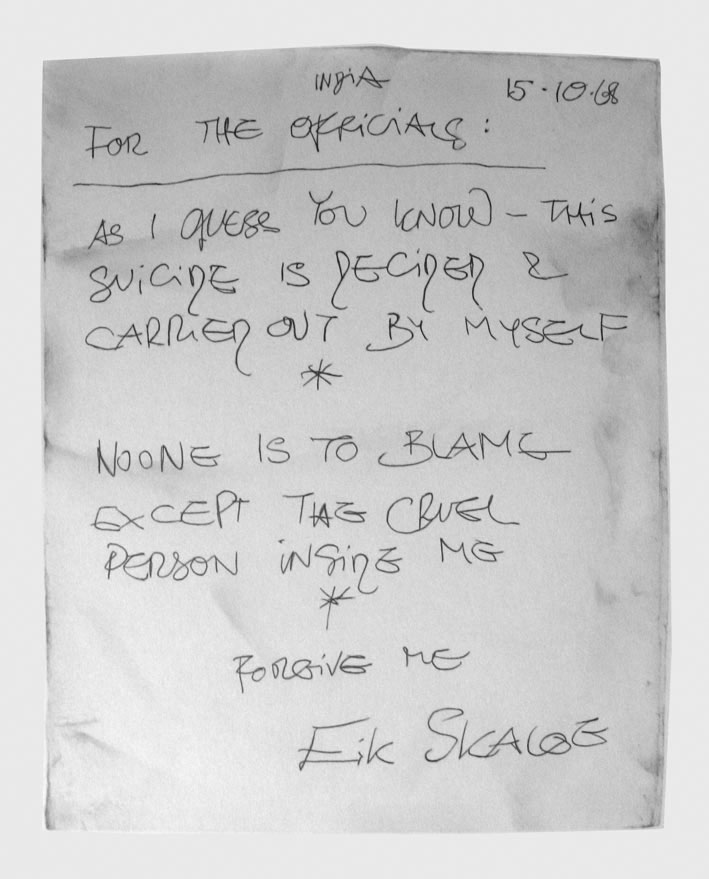 INDiA 15·10·68
FOR THE OFFICIALS:
AS I GUESS YOU KNOW – THIS
SUICIDE IS DECIDED &
CARRIED OUT BY MYSELF
*
NOONE IS TO BLAME
EXCEPT THE CRUEL
PERSON INSIDE ME
*
FORGIVE ME
Eik SKALØE